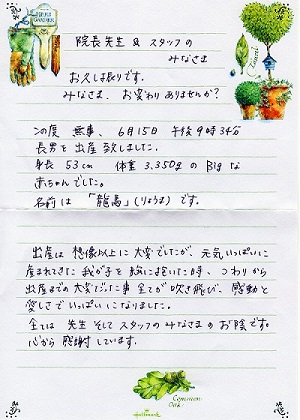 院長先生 & スタッフの
みなさま
お久し振りです。
みなさま、お変わりありませんか？
この度 無事、6月15日 午後9時34分
長男を出産致しました。
身長 53cm 体重 3,350gのBigな
赤ちゃんでした。
名前は「龍馬」(りょうま)です。
出産は想像以上に大変でしたが、元気いっぱいに
産まれてきた我が子を胸に抱いた時、つわりから
出産までの大変だった事全てが吹き飛び、感動と
愛しさでいっぱいになりました。
全ては 先生そしてスタッフのみなさまのお陰です。
心から感謝しています。
Common
Oak
Hallmark